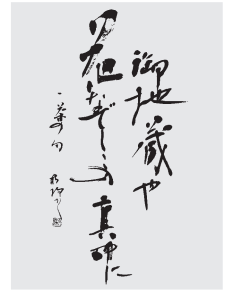 御地蔵や
花なでしこの真中に
一茶の句